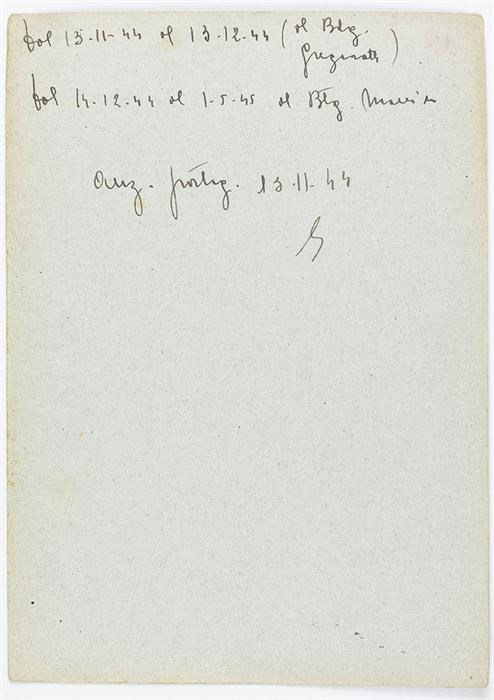 Dal 13-11-44 al 13-12-44 (al Btg.
)
Dal 14-12-44 al 1-5-45 al Btg.
Anz. partig. 13-11-44